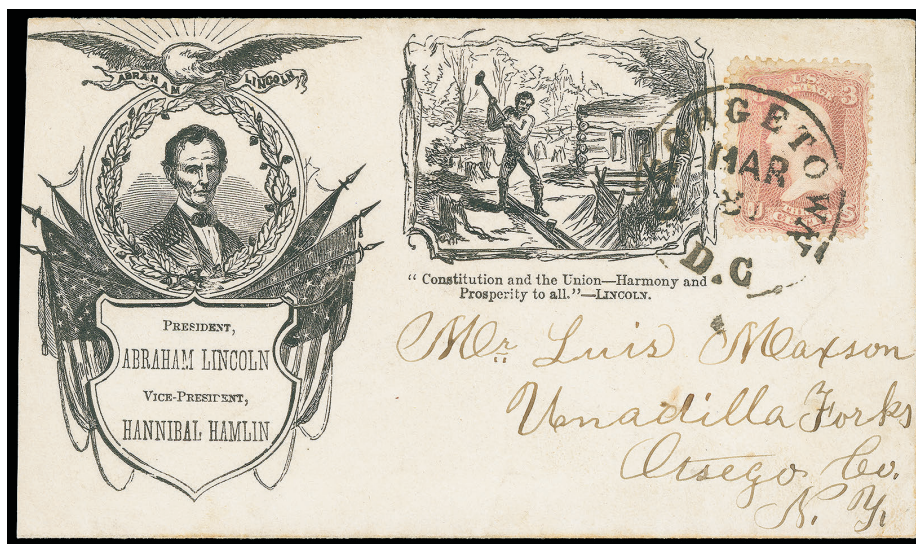 ABRAHAM LINCOLN
PRESIDENT,
ABRAHAM LINCOLN
VICE-PRESIDENT,
HANNIBAL HAMLIN
“ Constitution and the Union—Harmony and
Prosperity to all.”—LINCOLN.
U.S.
POSTAGE
3
GEORGETOWN
MAR
D.C
Mr Luis Maxson
Unadilla Forks
Otsego Co.
N. Y.